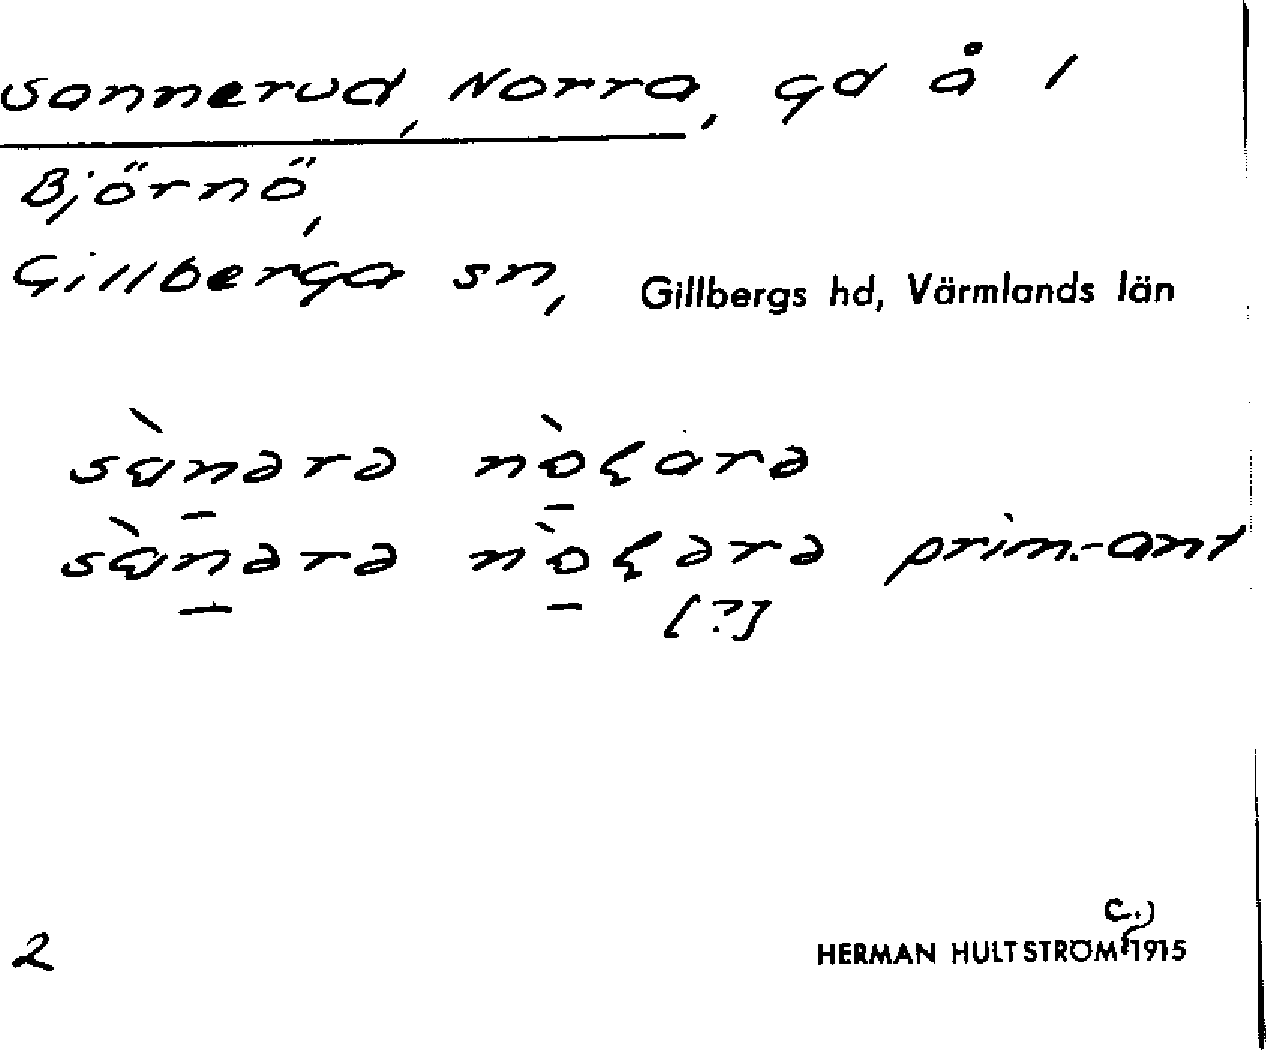 Sannerud, Norra, gd å 1
Björnö,
Gillberga sn, Gillbergs hd, Värmlands län
sànərə nòɽarə
sànərə nòɽərə prim.-ant
[?]
C:)
2 HERMAN HULTSTRÖM 1915